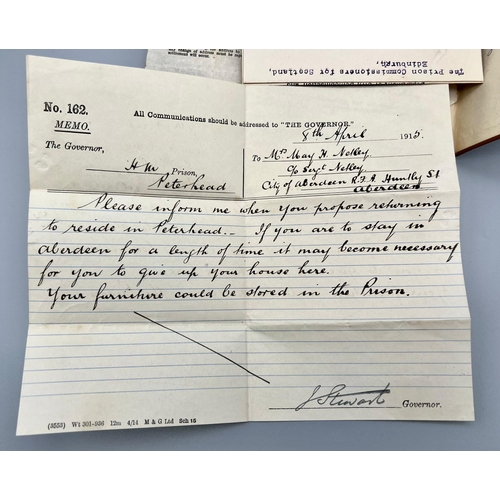 The Prison Commissioners for Scotland,
Edinburgh,
No. 162.
MEMO.
All Communications should be addressed to "THE GOVERNOR."
8th April 1915.
The Governor,
HM Prison,
Peterhead
To Mrs May H. Netley
c/o Sergt Netley
City of Aberdeen R.F.A. Huntly St
Aberdeen
Please inform me when you propose returning
to reside in Peterhead.- If you are to stay in
Aberdeen for a length of time it may become necessary
for you to give up your house here.
Your furniture could be stored in the Prison.
J Stewart Governor.
(3553) Wt 301-936 12m 4/14 M & G Ltd Sch 18